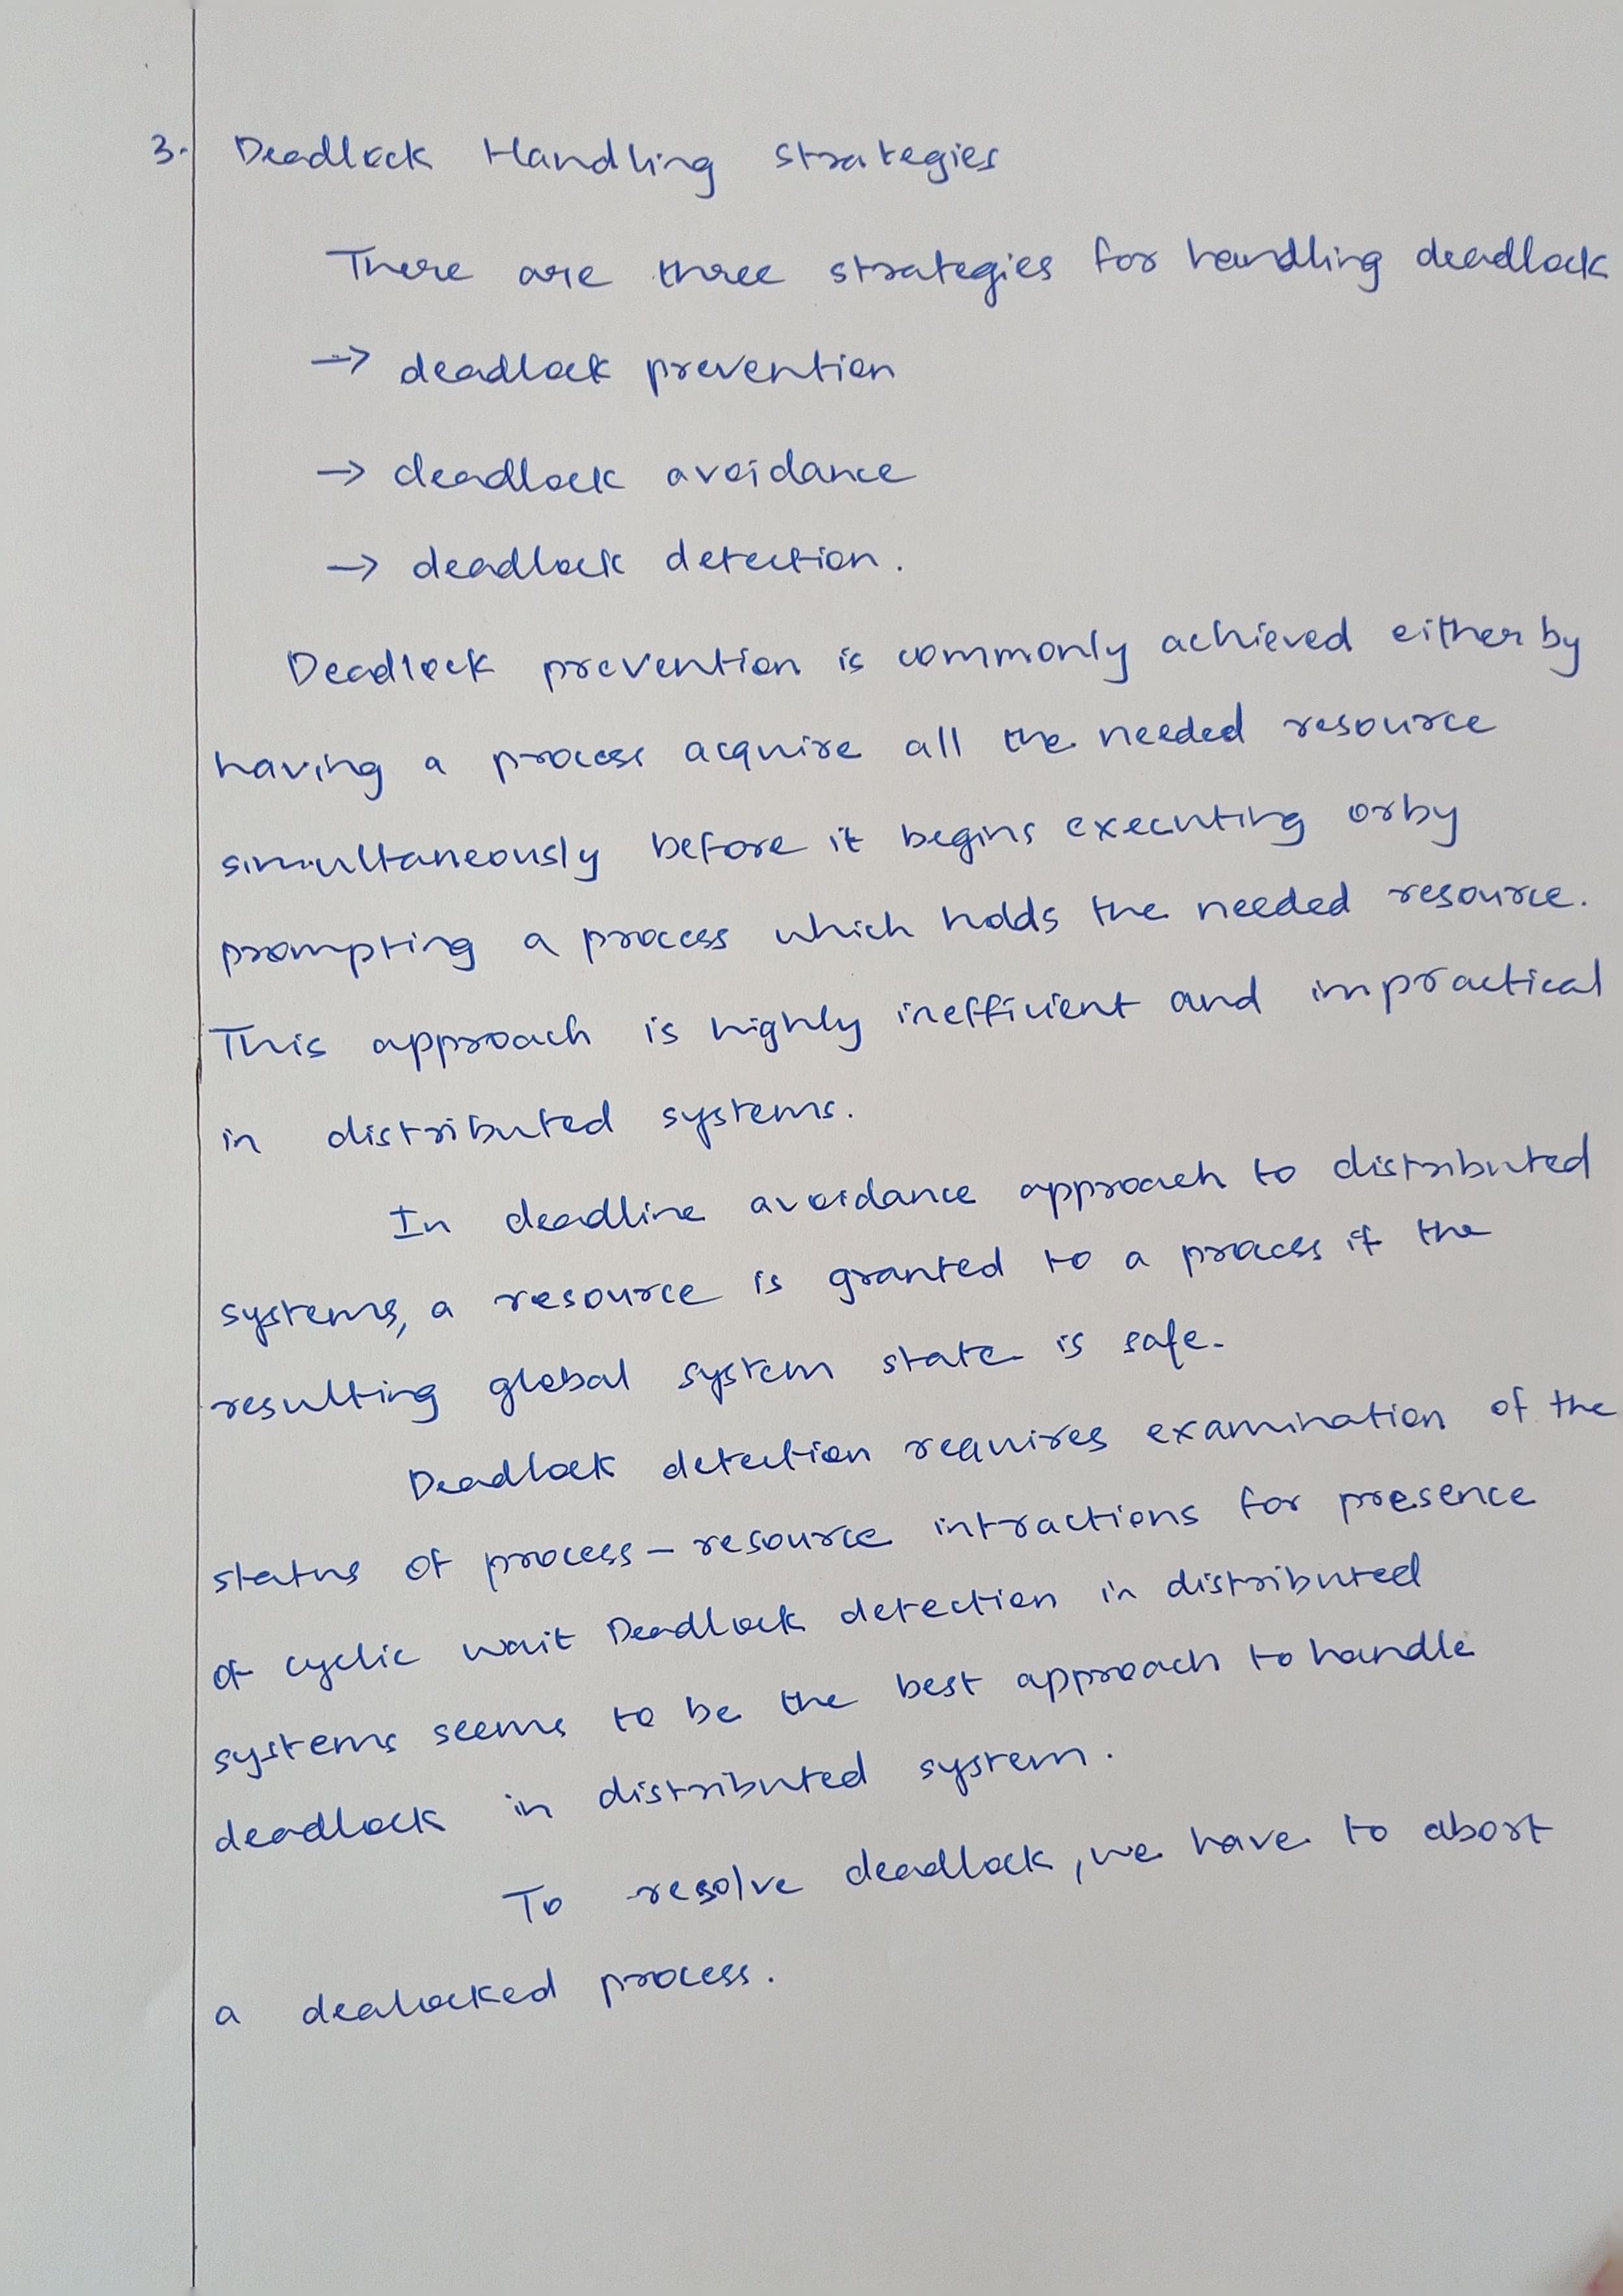 3. Deadlock Handling strategies
There are three strategies for handling deadlock
→ deadlock prevention
→ deadlock avoidance
→ deadlock detection.
Deadlock prevention is commonly achieved either by
having a process acquire all the needed resource
simultaneously before it begins executing or by
prompting a process which holds the needed resource.
This approach is highly inefficient and impractical
in distributed systems.
In deadline avoidance approach to distributed
systems, a resource is granted to a process if the
resulting global system state is safe.
Deadlock detection requires examination of the
status of process - resource intractions for presence
of cyclic wait Deadlock detection in distributed
systems seems to be the best approach to handle
deadlock in distributed system.
To resolve deadlock, we have to abort
a dealocked process.